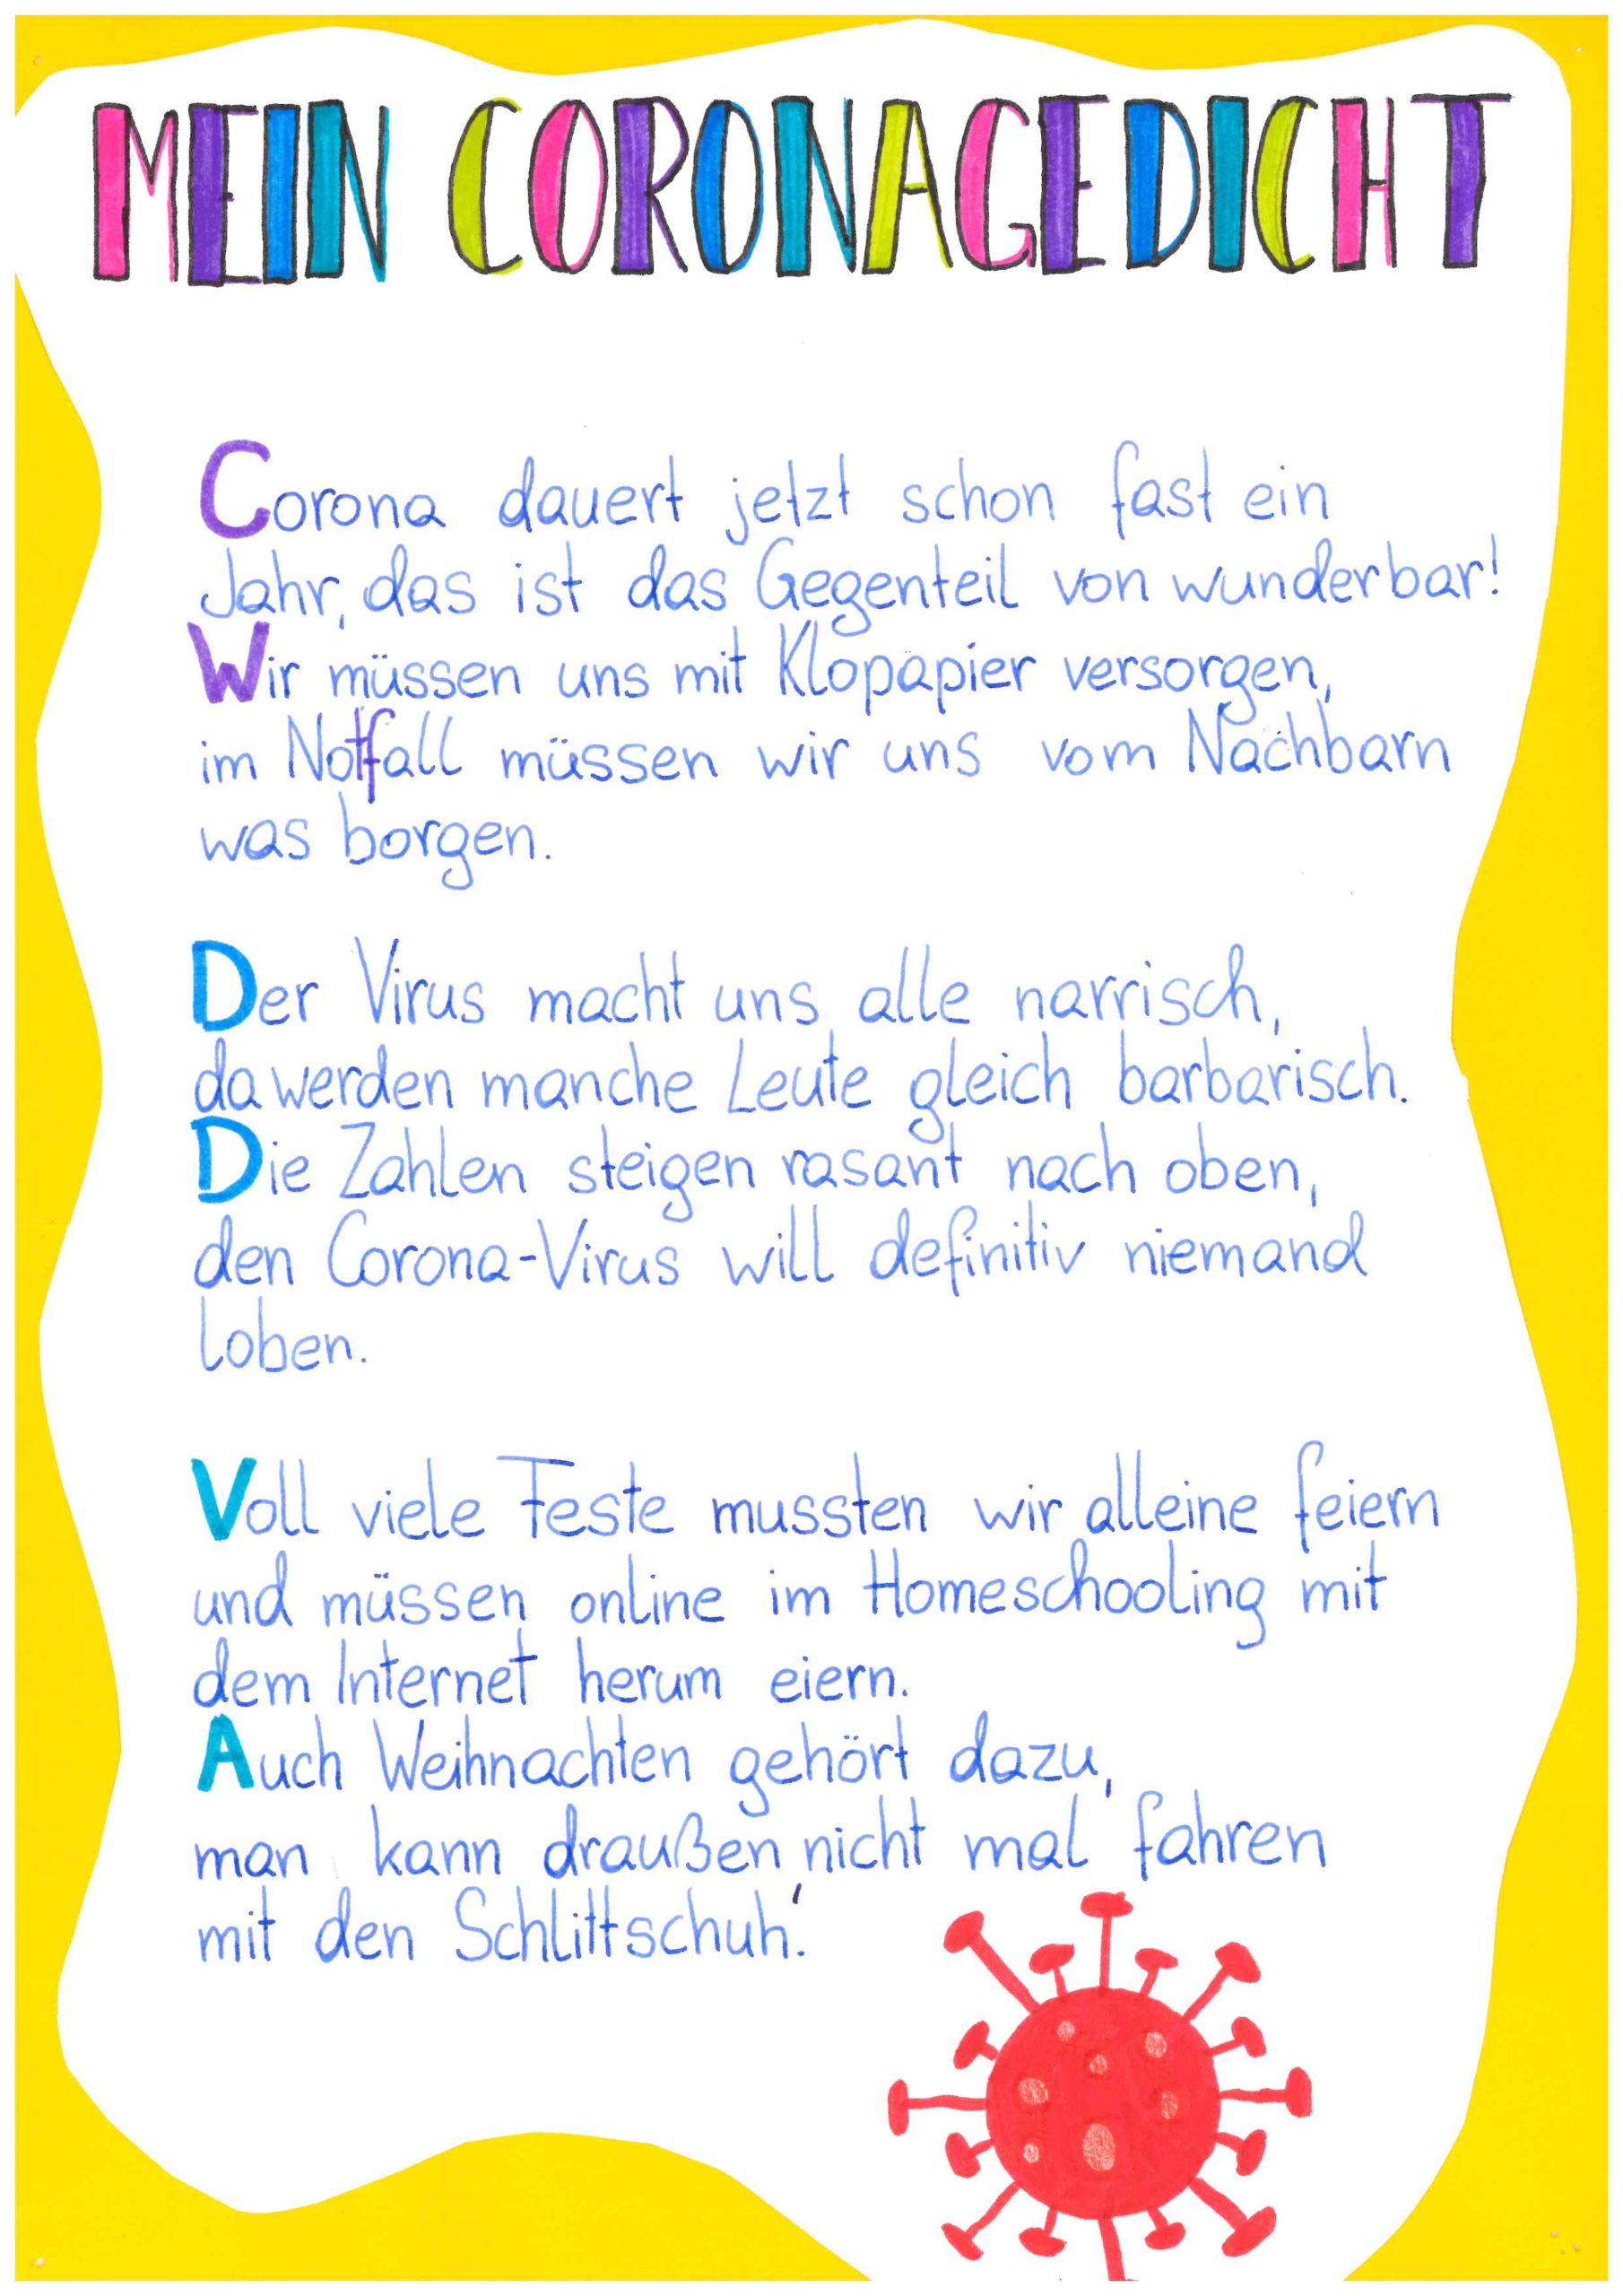 MEIN CORONAGEDICHT
Corona dauert jetzt schon fast ein
Jahr, das ist das Gegenteil von wunderbar!
Wir müssen uns mit Klopapier versorgen,
im Notfall müssen wir uns vom Nachbarn
was borgen.
Der Virus macht uns alle narrisch,
da werden manche Leute gleich barbarisch.
Die Zahlen steigen rasant nach oben,
den Corona-Virus will definitiv niemand
loben.
Voll viele Feste mussten wir alleine feiern
und müssen online im Homeschooling mit
dem Internet herum eiern.
Auch Weihnachten gehört dazu,
man kann draußen nicht mal fahren
mit den Schlittschuh!